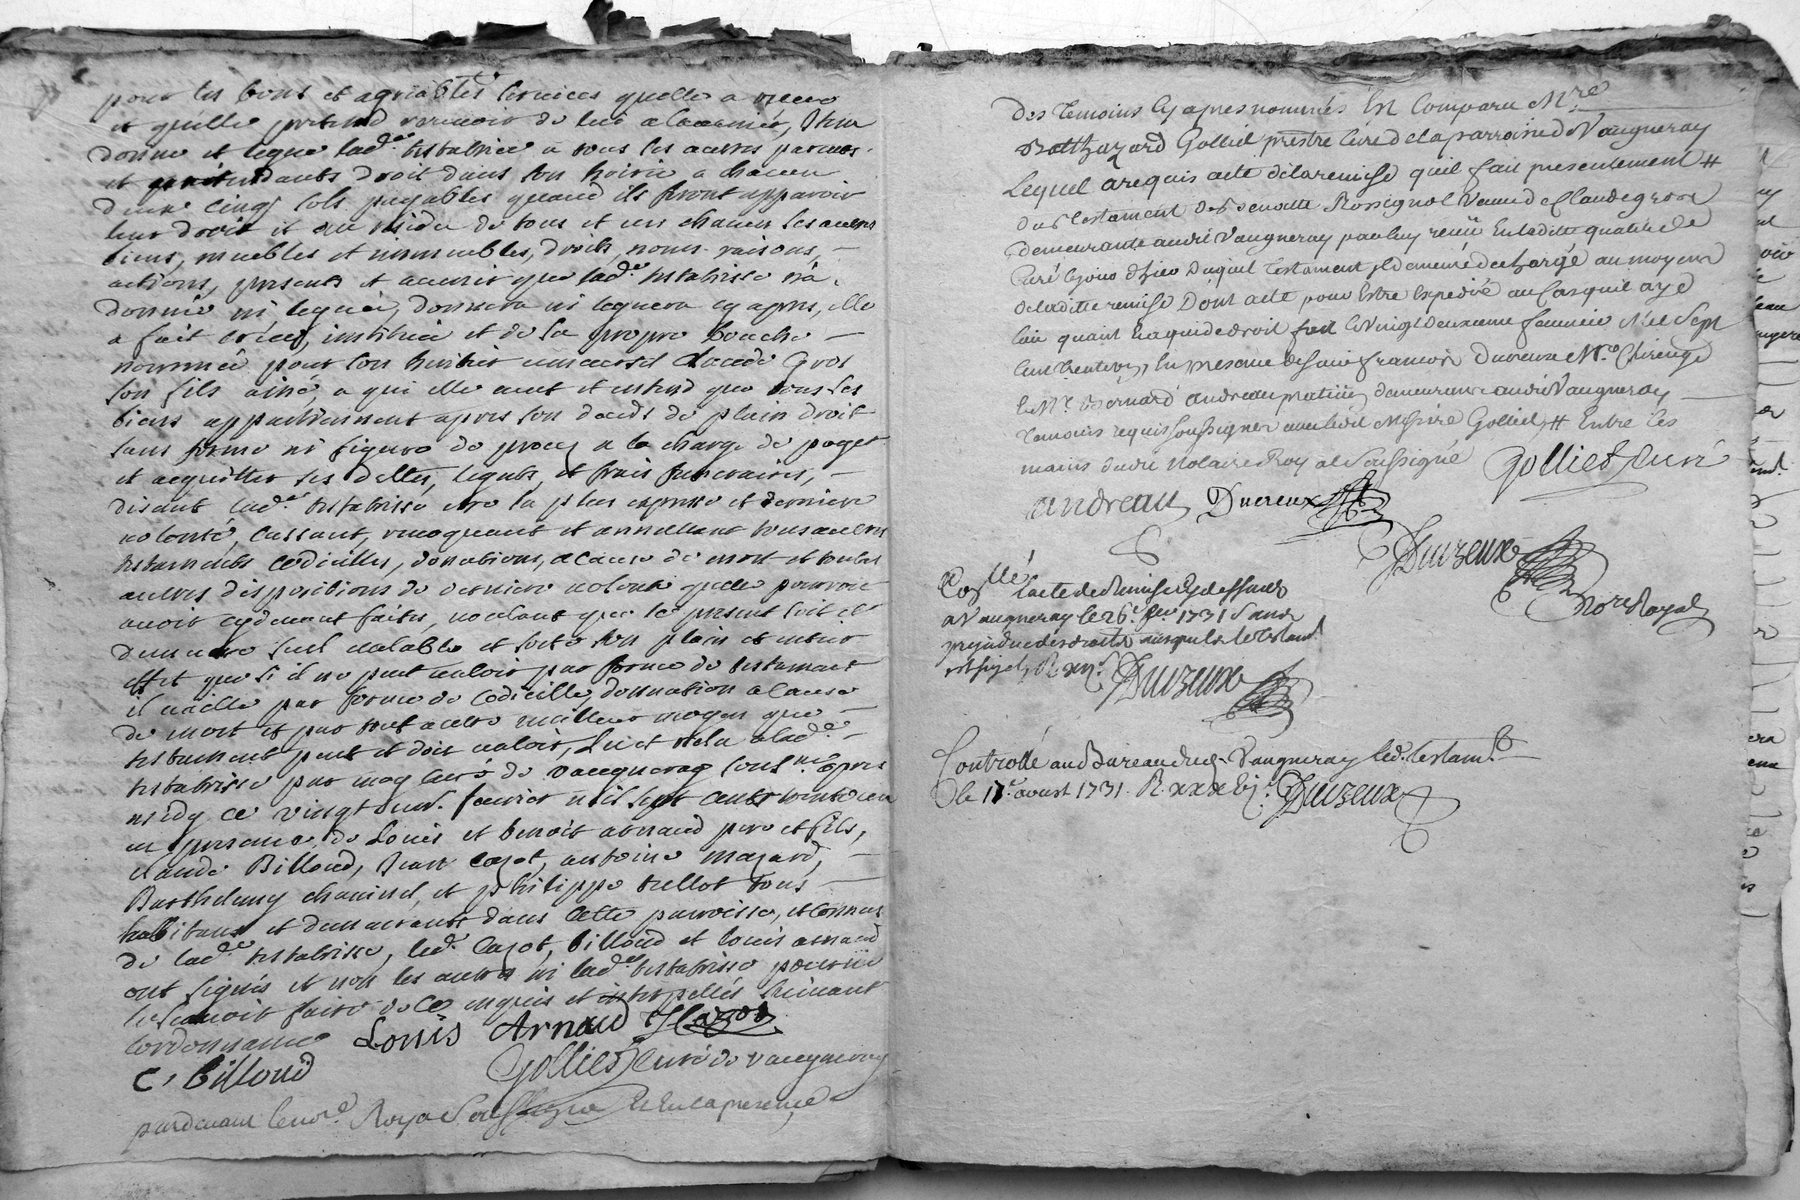 pour les bons et agréables services quelle a receu
et quelle pretend recevoir de luy a lavenir, Plus
donne et legue lad.e testatrice a tous ses autres parents
et pretendants droit dans son hoirie a chacun
d'eux cinq sols payables quand ils feront apparoir
leur droit et au residu de tous et un chacun ses autres
biens, meubles et immeubles, droits, noms raisons,
actions, presents et avenir que lad.e testatrice n'a
donné ni legué, donnera ni leguera cy apres, elle
a fait créé, institué et de sa propre bouche
nommé pour son heritier universel Claude Gros
son fils ainé, a qui elle veut et entend que tous ses
biens appartiennent apres son deceds de plain droit
sans forme ni figure de procez a la charge de payer
et acquitter ses dettes, legats, et frais funeraires,
disant lad.e testatrice etre sa plus expresse et derniere
volonté, cassant, revoquant et annullant tous autres
testaments codicilles, donations, a cause de mort et toutes
autres dispositions de derniere volonté quelle pourroit
avoir cydevant faites, voulant que le present soit et
demeure seul valable et sorte son plain et entier
effet que si il ne peut valoir par forme de testament
il vaille par forme de codicille, donnation a cause
de mort et par tout autre meilleur moyen que
testament peut et doit valoir, Lu et relu a lad.e
testatrice par moy curé de vaugneray souss.né apres
midy ce vingt un.e fevrier mil sept cents trente un
en presence de Louis et benoit arnaud pere et fils,
claude Billoud, Jean Cazot, antoine mazard,
Barthelemy chavinel, et philippe trellot tous
habitans et demeurants dans cette parroisse, et connus
de lad.e testatrice, led. Cazot, billoud et louis arnaud
ont signés et non les autres ni lad.e testatrice pour ne
le scavoir faire de ce enquis et interpellés suivant
lordonnance Louis Arnaud J Cazot
C, billoud Golliet curé de vaugneray
pardevant le no.re Royal Soussigné Et En la presence
des temoins cy apres nommés Est Comparu M.re
Balthazard Golliet prestre Curé de la parroisse de Vaugneray
Lequel a requis acte de la remise quil fait presentement #
du Testament de Benoitte Rossignol Veuve de Claude gros
demeurante audit Vaugneray par luy receü En laditte qualité de
Curé le jour d'hier Duquel Testament il demeure decharge au moyen
de laditte remise Dont acte pour Estre Expedié au Cas quil aye
lieu quant Et a qui de droit fait le Vingt deuxieme fevrier Mil Sept
Cent trente un, En presence de Sieur francois Dureux M.re Chirurgien
Et M.e Bernard andreau praticien demeurans audit Vaugneray
Temoins requis soussignes avec ledit Messire Golliet, # Entre les
mains dudit Notaire Royal Soussigné Golliet curé
andreau Dureux
Duizeux
No.re Royal
Con.llé Lacte de Remise Cydessus
a Vaugneray le 26.e fev.r 1731 Sans
prejudice des droits ausquels le testam.t
est sujet, R. xii s. Duizeux
Controllé au Bureau dud. Vaugneray led. testam.t
le 17.e aoust 1731. R. Duizeux